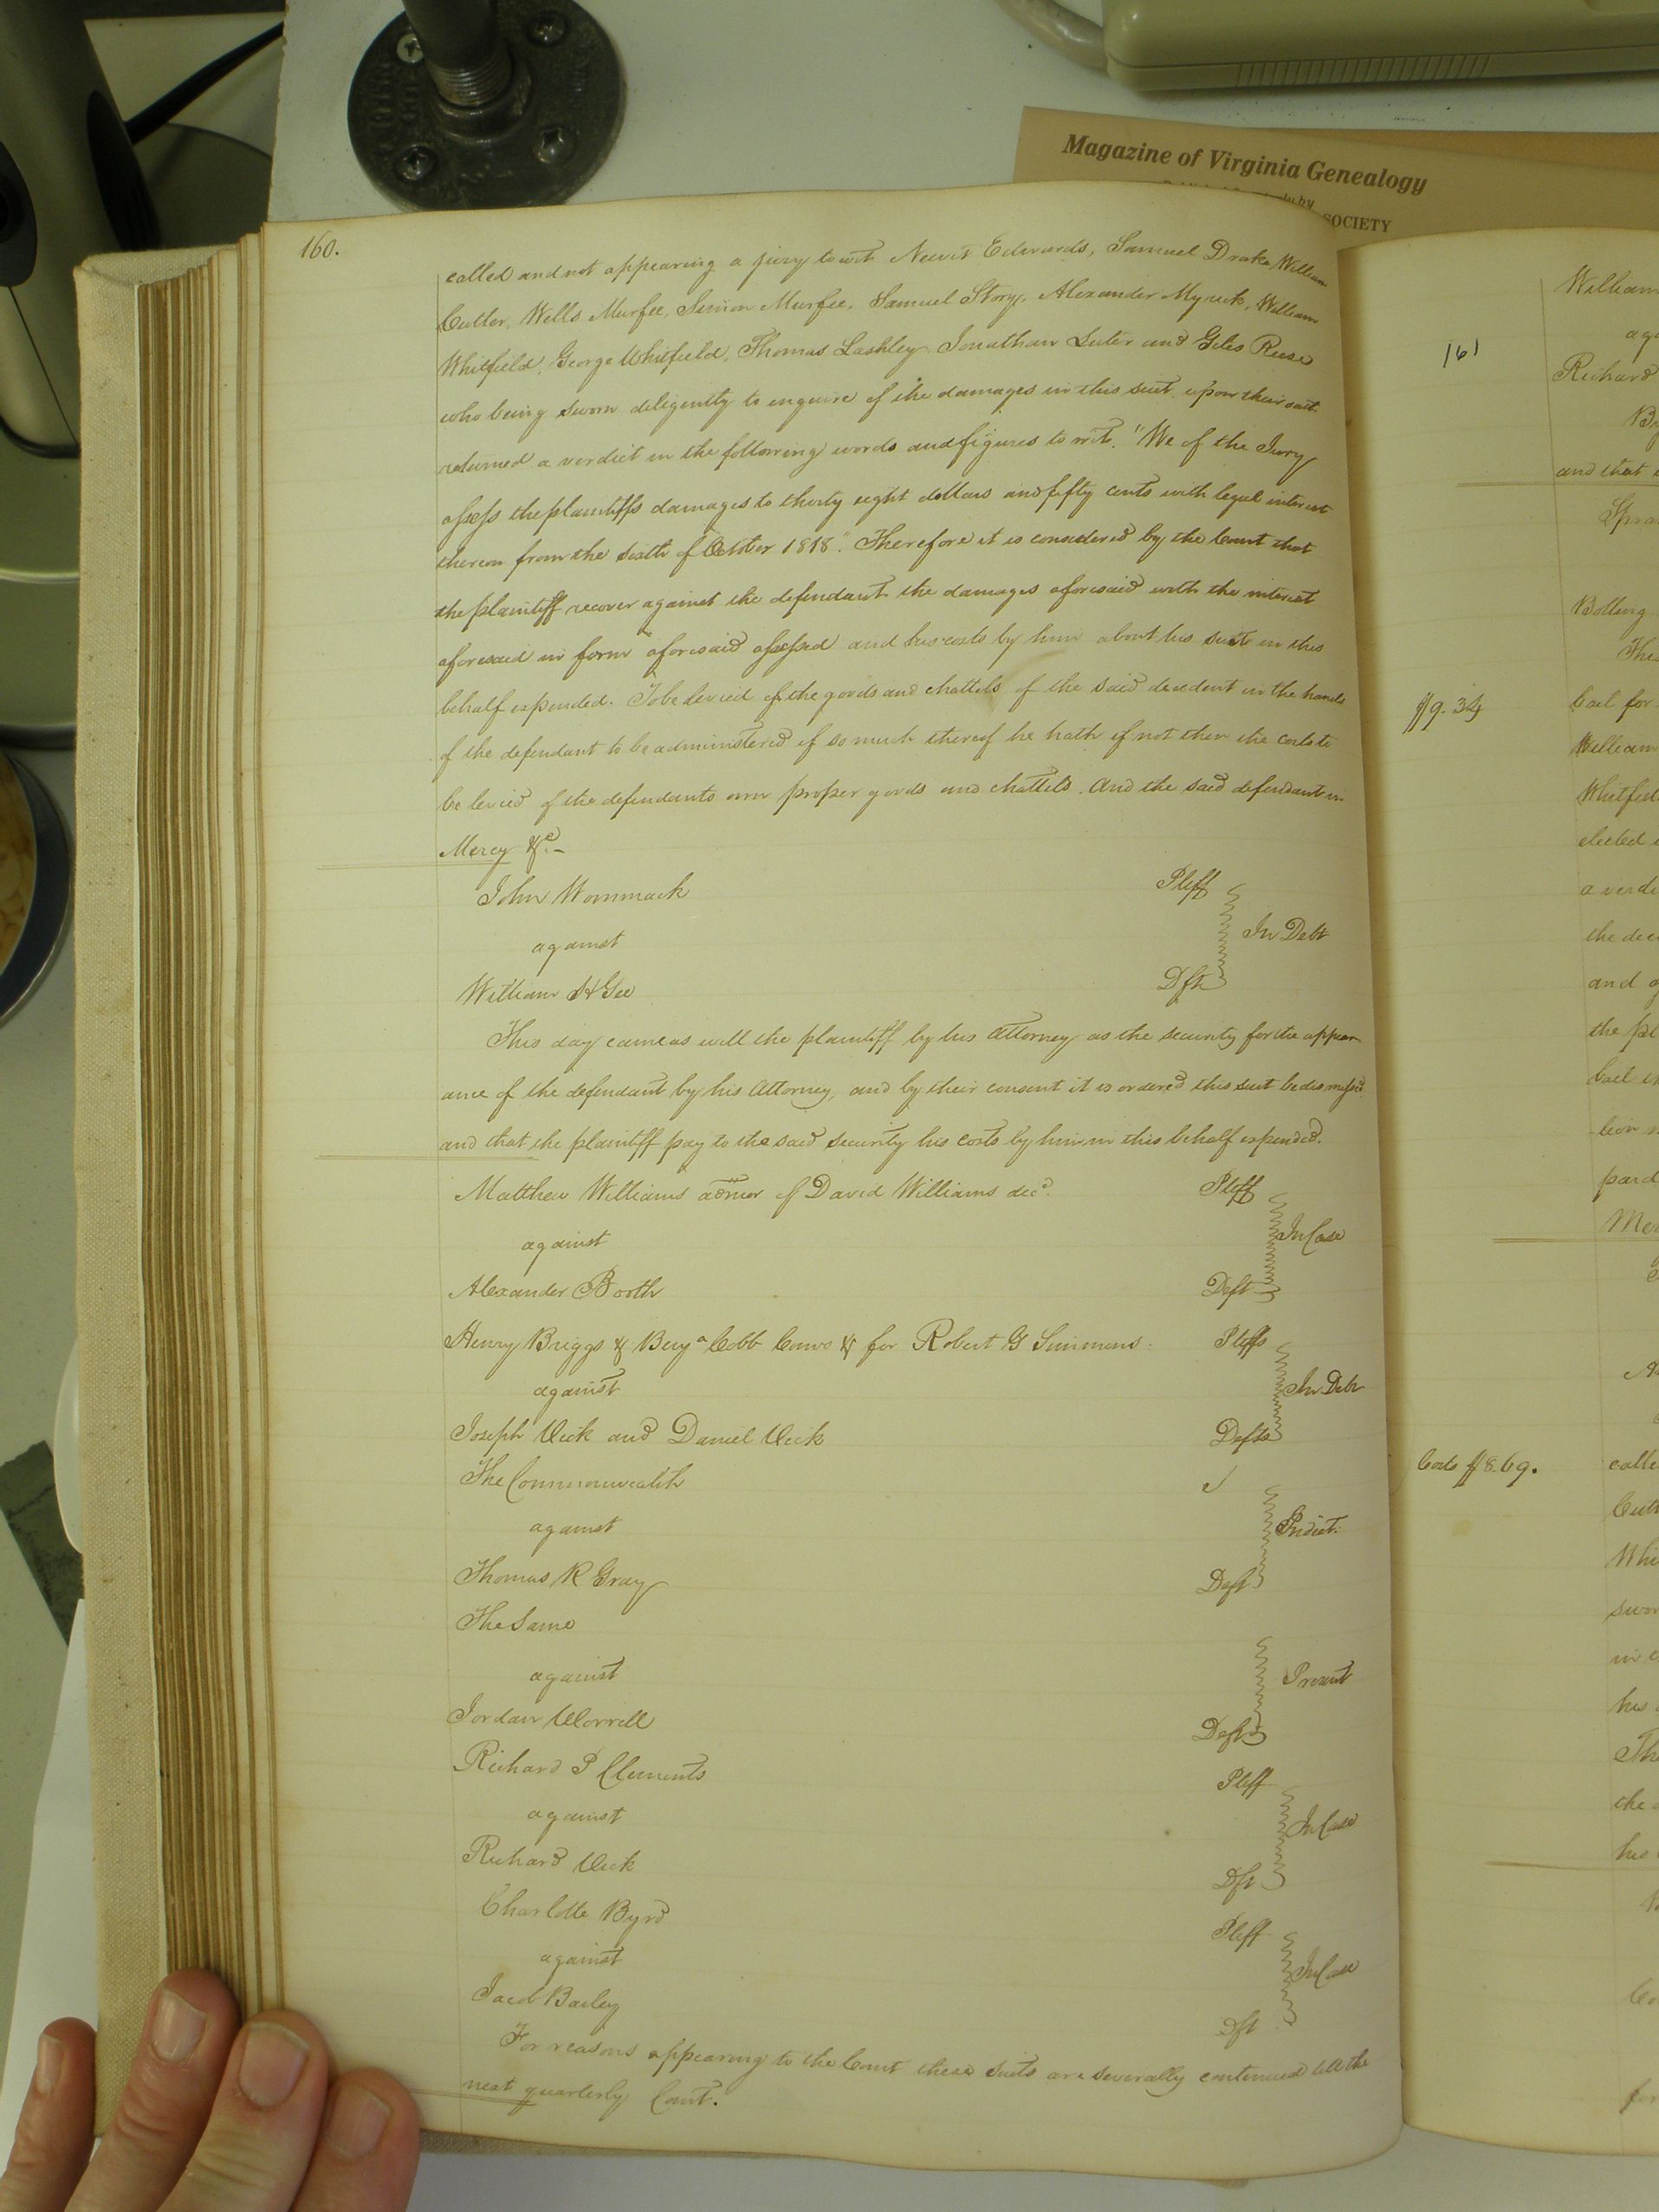 Magazine of Virginia Genealogy
SOCIETY
160.
called and not appearing a jury towit Newit Edwards, Samuel Drake, William
Cutler, Wells Murfee, Simon Murfee, Samuel Story, Alexander Myrick, William
Whitfield, George Whitfield, Thomas Lashley Jonathan Luter and Giles Reese
who being sworn diligently to enquire of the damages in this suit upon their oath
returned a verdict in the following words and figures to wit. "We of the Jury
assess the plaintiffs damages to thirty eight dollars and fifty cents with legal interest
thereon from the sixth of October 1818." Therefore it is considered by the Court that
the plaintiff recover against the defendant the damages aforesaid with the interest
aforesaid in form aforesaid assessed and his costs by him about his suit in this
behalf expended. To be levied of the goods and chattels of the said decedent in the hands
of the defendant to be administered if so much thereof he hath if not then the costs to
be levied of the defendants own proper goods and chattels. And the said defendant in
Mercy &c.-
John Wommack Pltff
against In Debt
William H Gee Dft
This day came as well the plaintiff by his attorney as the security for the appear
ance of the defendant by his Attorney, and by their consent it is ordered this suit be dismissed
and that the plaintiff pay to the said security his costs by him in this behalf expended.
Matthew Williams admor of David Williams decd. Pltff
against In Case
Alexander Booth Deft
Henry Briggs & Benja Cobb Comrs & for Robert G Simmons. Pltffs
against In Debt
Joseph Vick and Daniel Vick Defts
The Commonwealth
against Indict.
Thomas R Gray Deft
The Same
against Present
Jordan Worrell Deft
Richard P Clements Pltff
against In Case
Richard Vick Dft
Charlotte Byrd Pltff
against In Case
Jacob Barley Dft
For reasons appearing to the Court these suits are severally continued till the
next quarterly Court.
161
$9.34
Costs $8.69.
William
Richard
and that
Bolling
bail for
William
Whitfield
elected
a verdi
and
the pl
paid